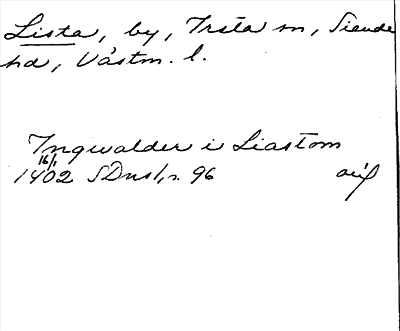 Lista, by, Irsta sn, Siende
hd, Västm. l.
Ingwalder i Liastom
16/1
1402 SDns 1, n. 96 avl